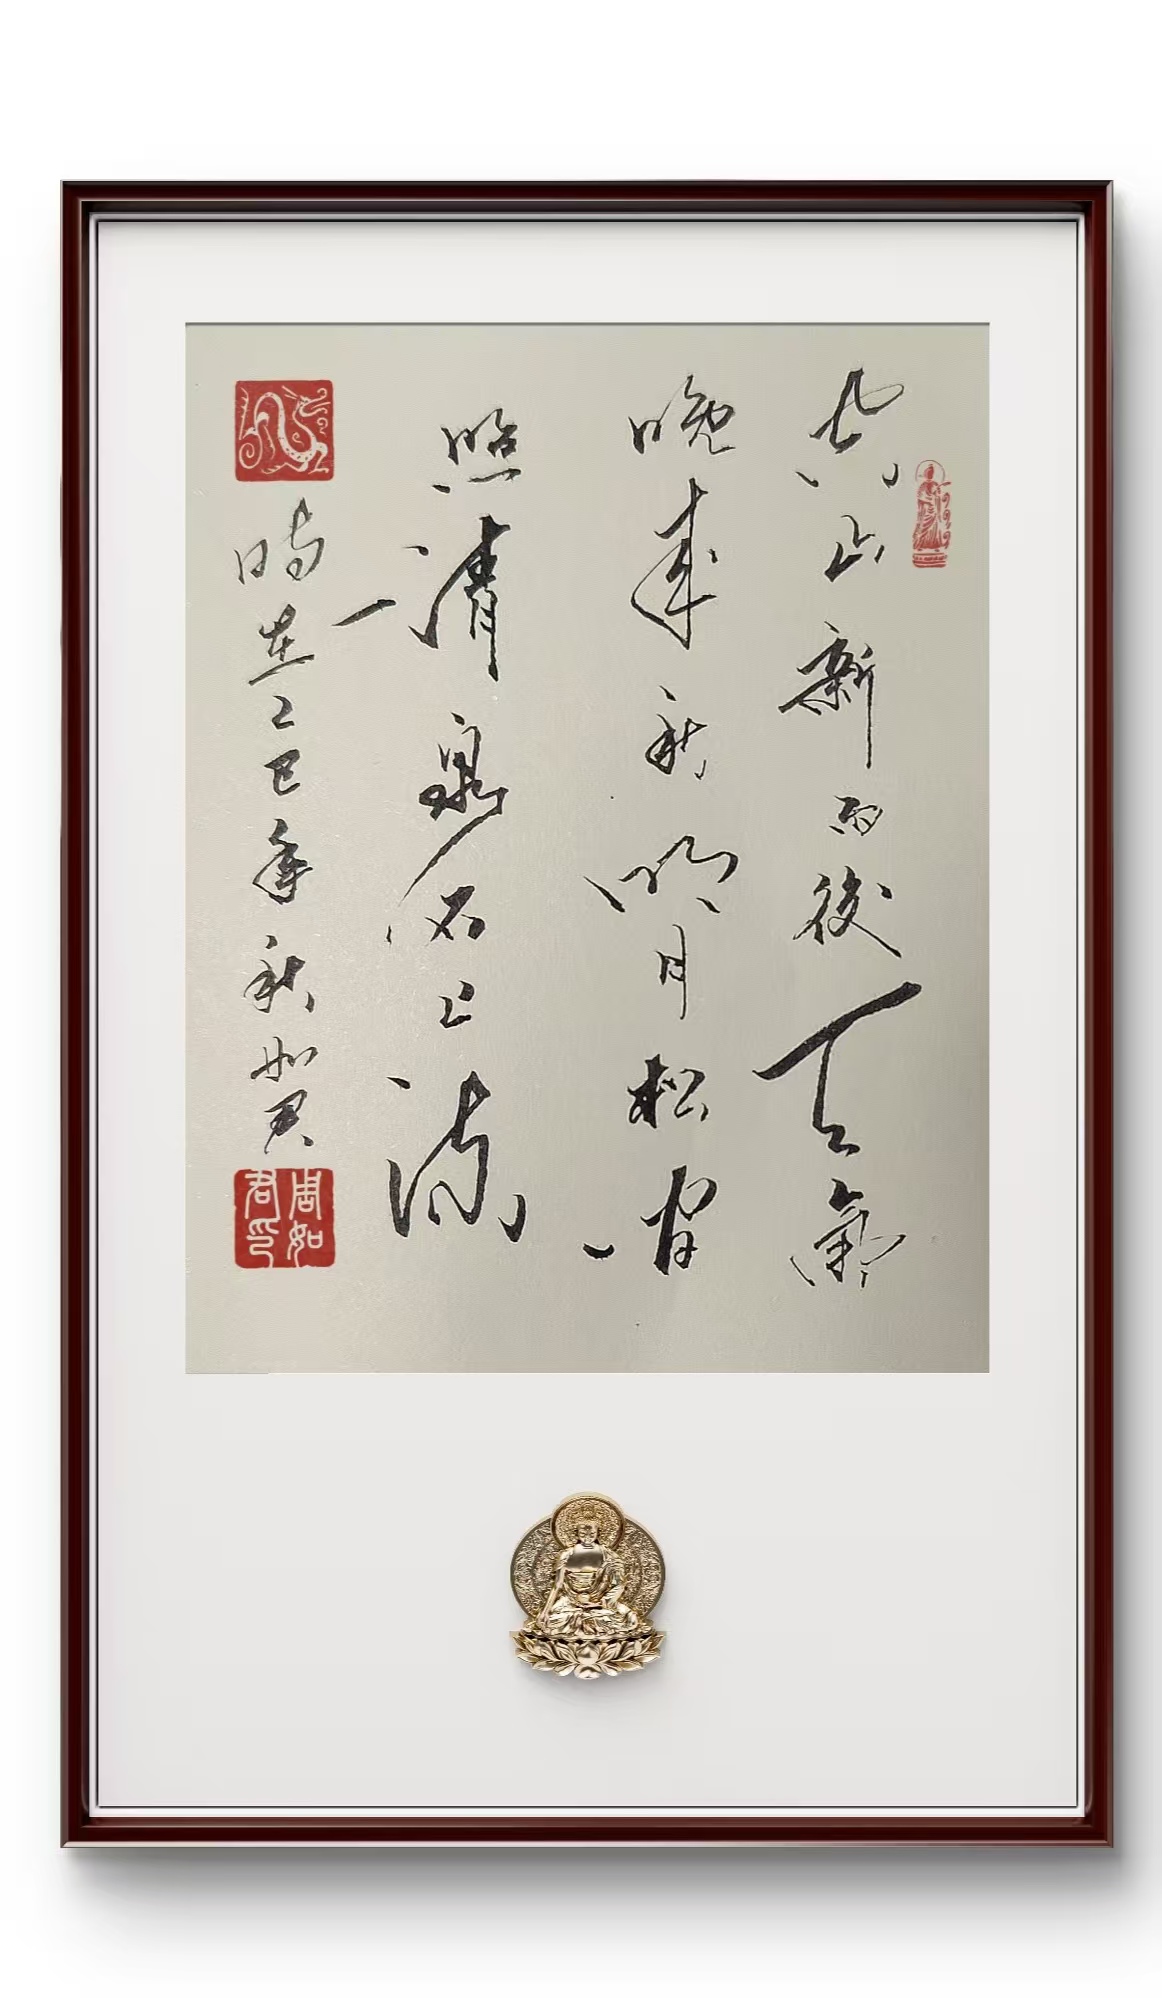 空山新雨後天氣
晚來秋明月松間
照清泉石上流
時在乙巳年秋如君
周如君印